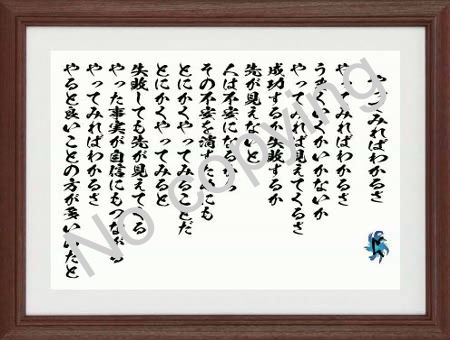 やってみればわかるさ
やってみればわかるさ
うまくいくかいかないか
やってみれば見えてくるさ
成功するか失敗するか
先が見えないと
人は不安になるから
その不安を消すためにも
とにかくやってみることだ
とにかくやってみると
失敗しても先が見えてくる
やった事実が自信にもつながる
やってみればわかるさ
やると良いことの方が多いんだと
No copying